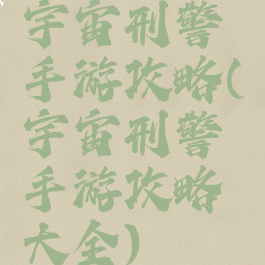 宇宙刑警
手游攻略(
宇宙刑警
手游攻略
大全)